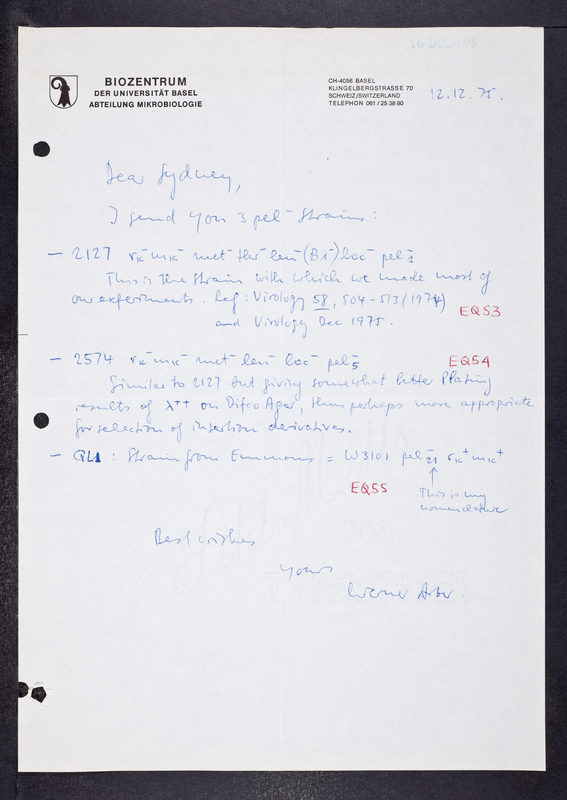 16 DEC 1975
BIOZENTRUM
DER UNIVERSITÄT BASEL
ABTEILUNG MIKROBIOLOGIE
CH-4056 BASEL
KLINGELBERGSTRASSE 70
SCHWEIZ/SWITZERLAND
TELEPHON 061/25 38 80
12.12.75.
Dear Sydney,
I send you 3 pel⁻ strains:
– 2127 rₖ⁻mₖ⁻ met⁻ thr⁻ leu⁻ (B1⁻) lac⁻ pel⁻₁
This is the strain with which we made most of
our experiments. Ref: Virology 58, 504-513 (1974)
and Virology Dec 1975.
EQ53
– 2574 rₖ⁻mₖ⁻ met⁻ leu⁻ lac⁻ pel⁻₅
EQ54
Similar to 2127 but giving somewhat better plating
results of λ⁺⁺ on Difco Agar, thus perhaps more appropriate
for selection of insertion derivatives.
– QL1 : Strain from Emmons = W3101 pel⁻₂₁ rₖ⁺mₖ⁺
EQ55
↑
This is my
nomenclature
Best wishes
yours
Werner Arber.